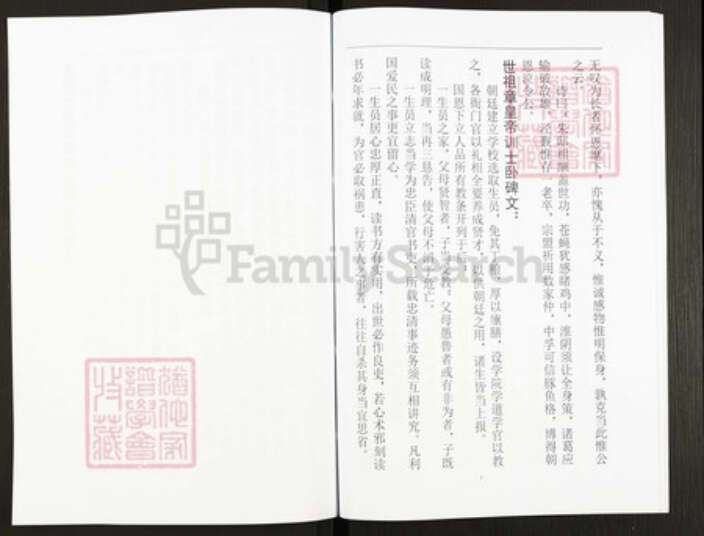 无叹为长者怀恩罩下，亦愧从于不义，惟诚感物惟明保身，孰克当此惟公
之云
诗曰：朱邸相酬盖世功，苍蝇犹感睹鸡中，淮阴须让全身策，诸葛应
输破敌雄，泾觐惟存一老卒，宗盟祈用数家仲，中孚可信豚鱼格，博得朝
恩说令公。
世祖章皇帝训士卧碑文：
朝廷建立学校选取生员，免其丁粮，厚以廪膳，设学院学道学官以教
之，各衙门官以礼相全要养成贤才，以供朝廷之用，诸生皆当上报
国恩下立人品所有教条开列于后：
一生员之家，父母贤智者，子当受教；父母愚鲁者或有非为者，子既
读成明理，当再三恳告，使父母不陷于危亡。
一生员立志当学为忠臣清官书史，所载忠清事迹务须互相讲究，凡利
国爱民之事更宜留心。
一生员居心忠厚正直，读书方有实用，出世必作良吏，若心术邪刻读
书必年求就，为官必取祸患，行害人之事者，往往自杀其身当宜思省。
FamilySearch